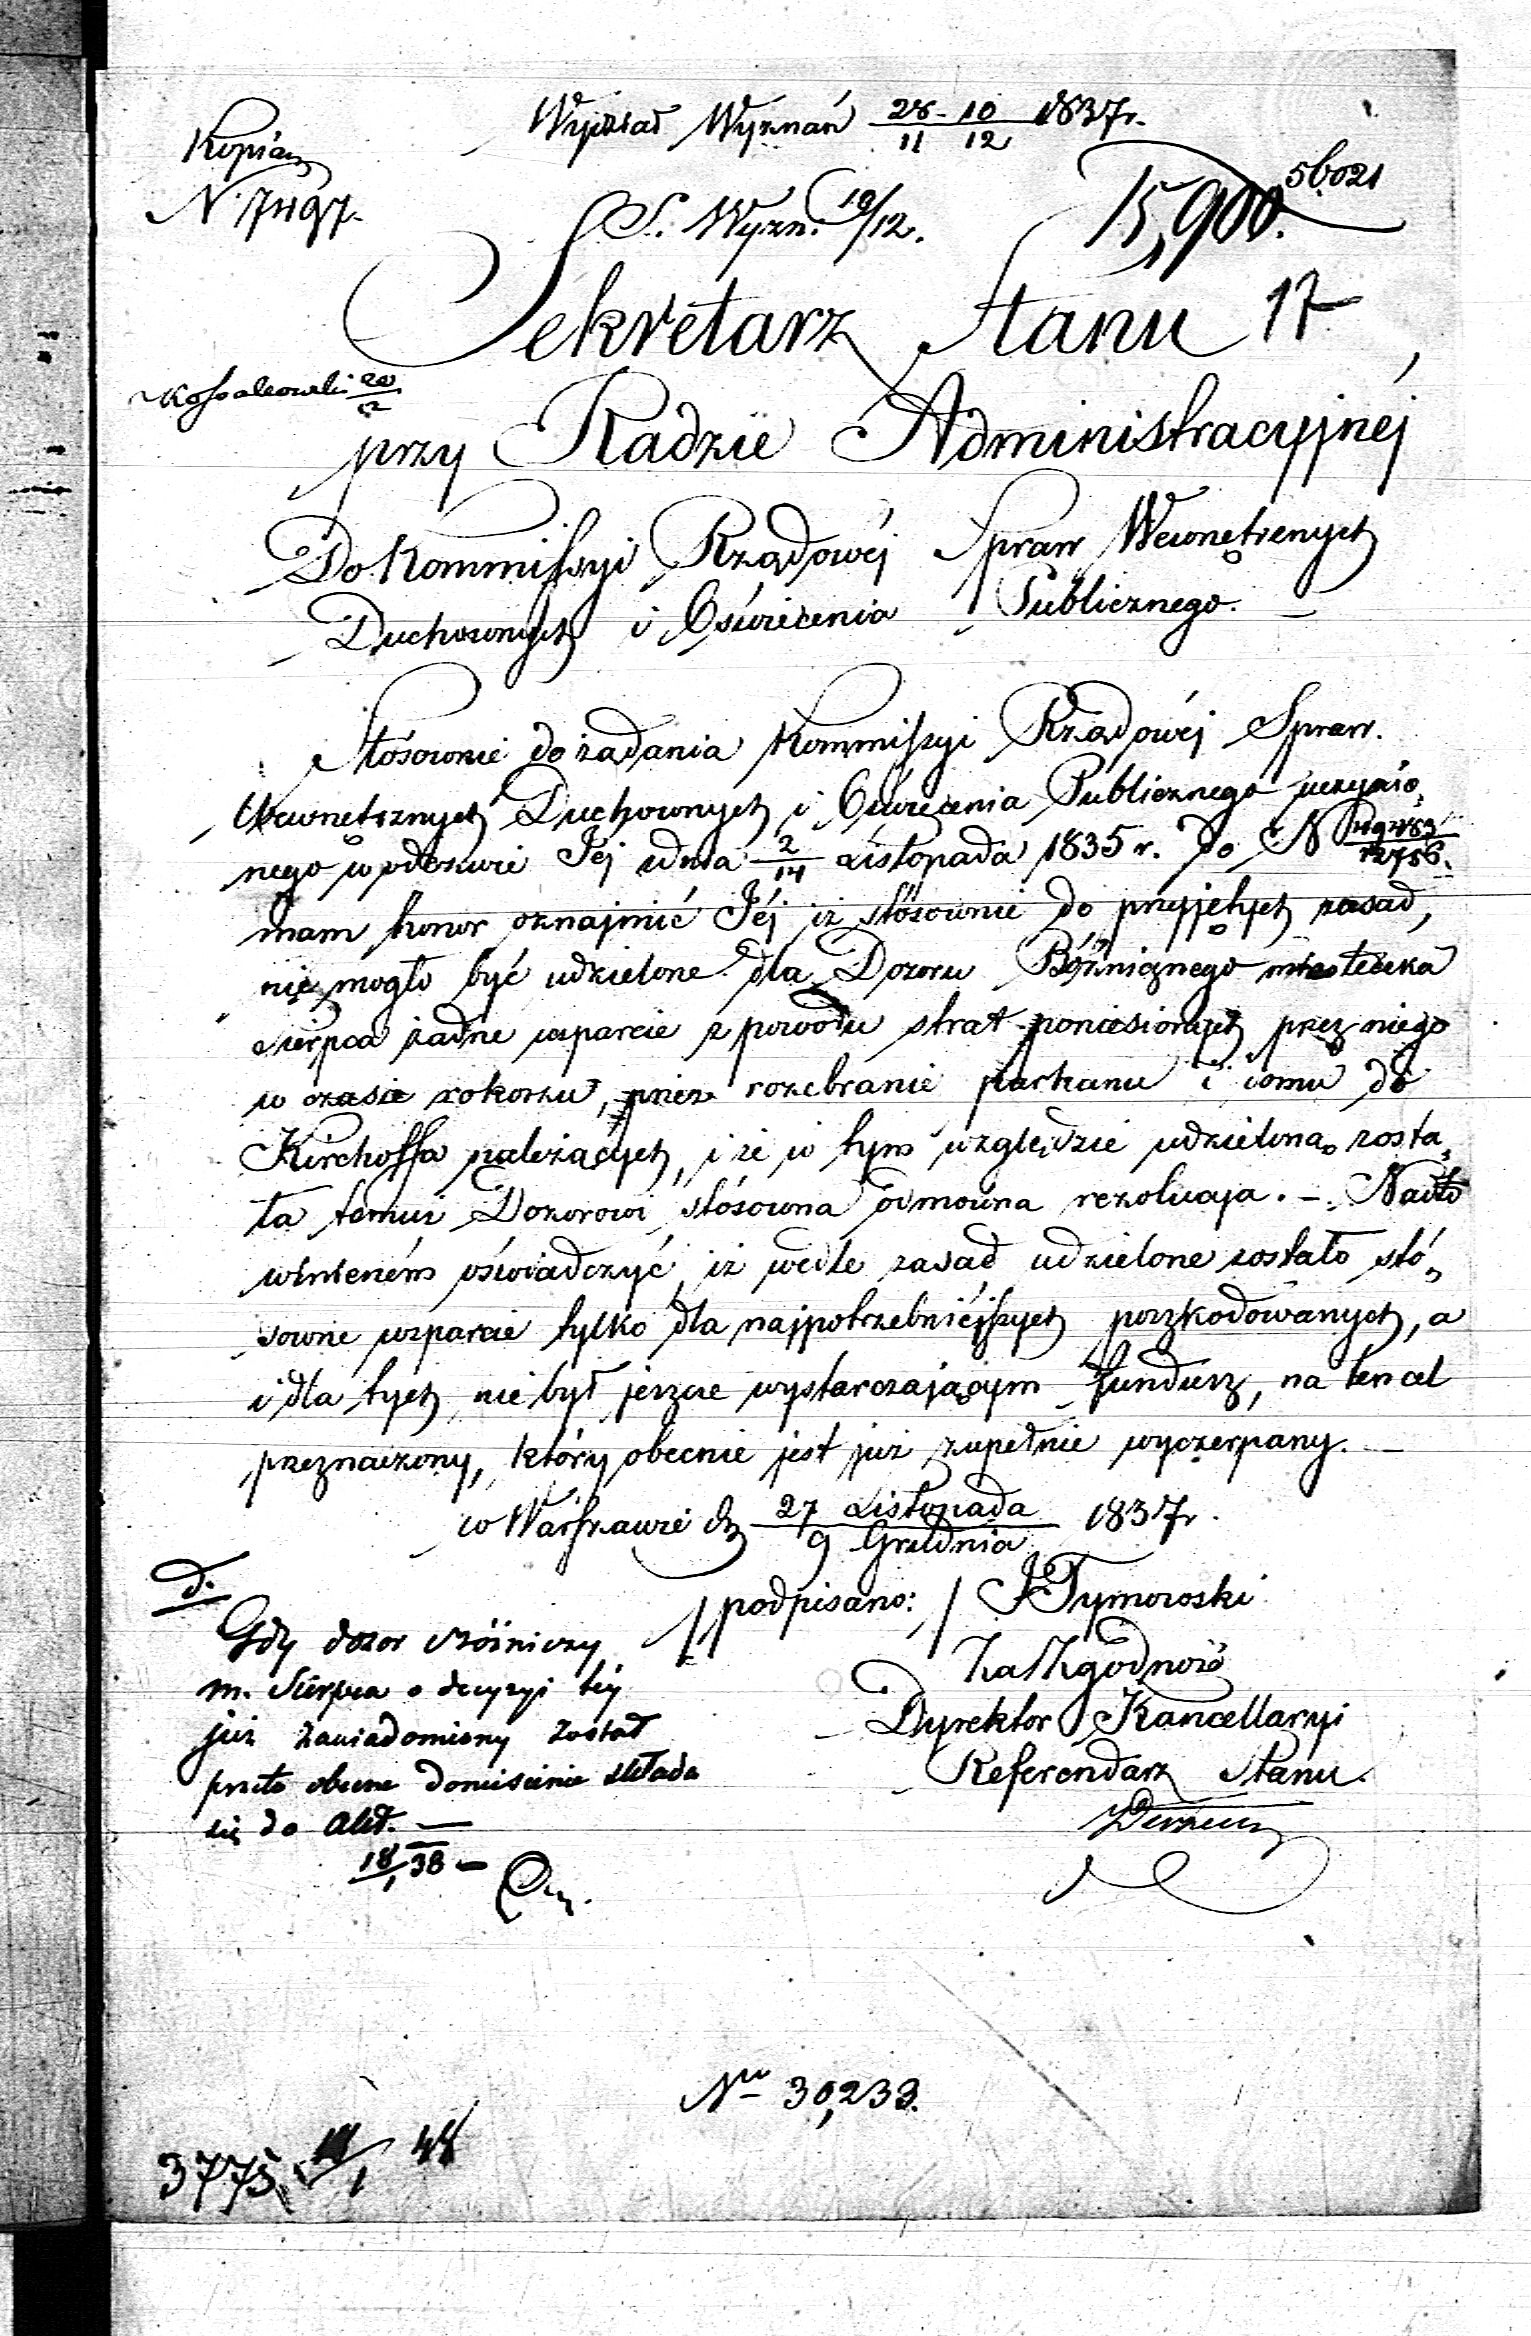 Wydział Wyznań 28/11 - 10/12 1837 r.
Kopia
N. 7497.
S. Wyzn. 10/12.
15,900.
Sekretarz Stanu 17
przy Radzie Administracyjnéj
Do Kommissyi Rządowéj Spraw Wewnętrznych
Duchownych i Oświecenia Publicznego. —
Stósownie do żądania Kommissyi Rządowéj Spraw.
Wewnętrznych Duchownych i Oświecenia Publicznego uczynio„
nego w odezwie Jéj z dnia 2/14 Listopada 1835 r. do N
mam honor oznajmić Jéj iż stósownie do przyjętych zasad,
nie mogło być udzielone dla Dozoru Bóżnicznego miasteczka
Sierpca żadne wsparcie z powodu strat poniesionych przez niego
w czasie rokoszu, przez rozebranie parkanu i domu do
Kirchoffa należących, i że w tym względzie udzieloną zosta„
ła temuż Dozorowi stósowna odmowna rezolucya. — Nadto
winieném oświadczyć, iż wedle zasad udzielone zostało stó„
sowne wsparcie tylko dla najpotrzebniéjszych poszkodowanych, a
i dla tych nie był jeszcze wystarczającym fundusz, na ten cel
przeznaczony, który obecnie jest już zupełnie wyczerpany. —
w Warszawie d. 27 Listopada / 9 Grudnia 1837 r.
/podpisano:/ J Tymowski
Za Zgodność
Dyrektor Kancellaryi
Referendarz Stanu.
d.
Gdy dozor bóżniczy
m. Sierpca o decyzyi téy
już zawiadomiony został
przeto obecne doniesienie składa
się do akt. —
18/1 38 —
Nr 30,233.
3775 18/1 48